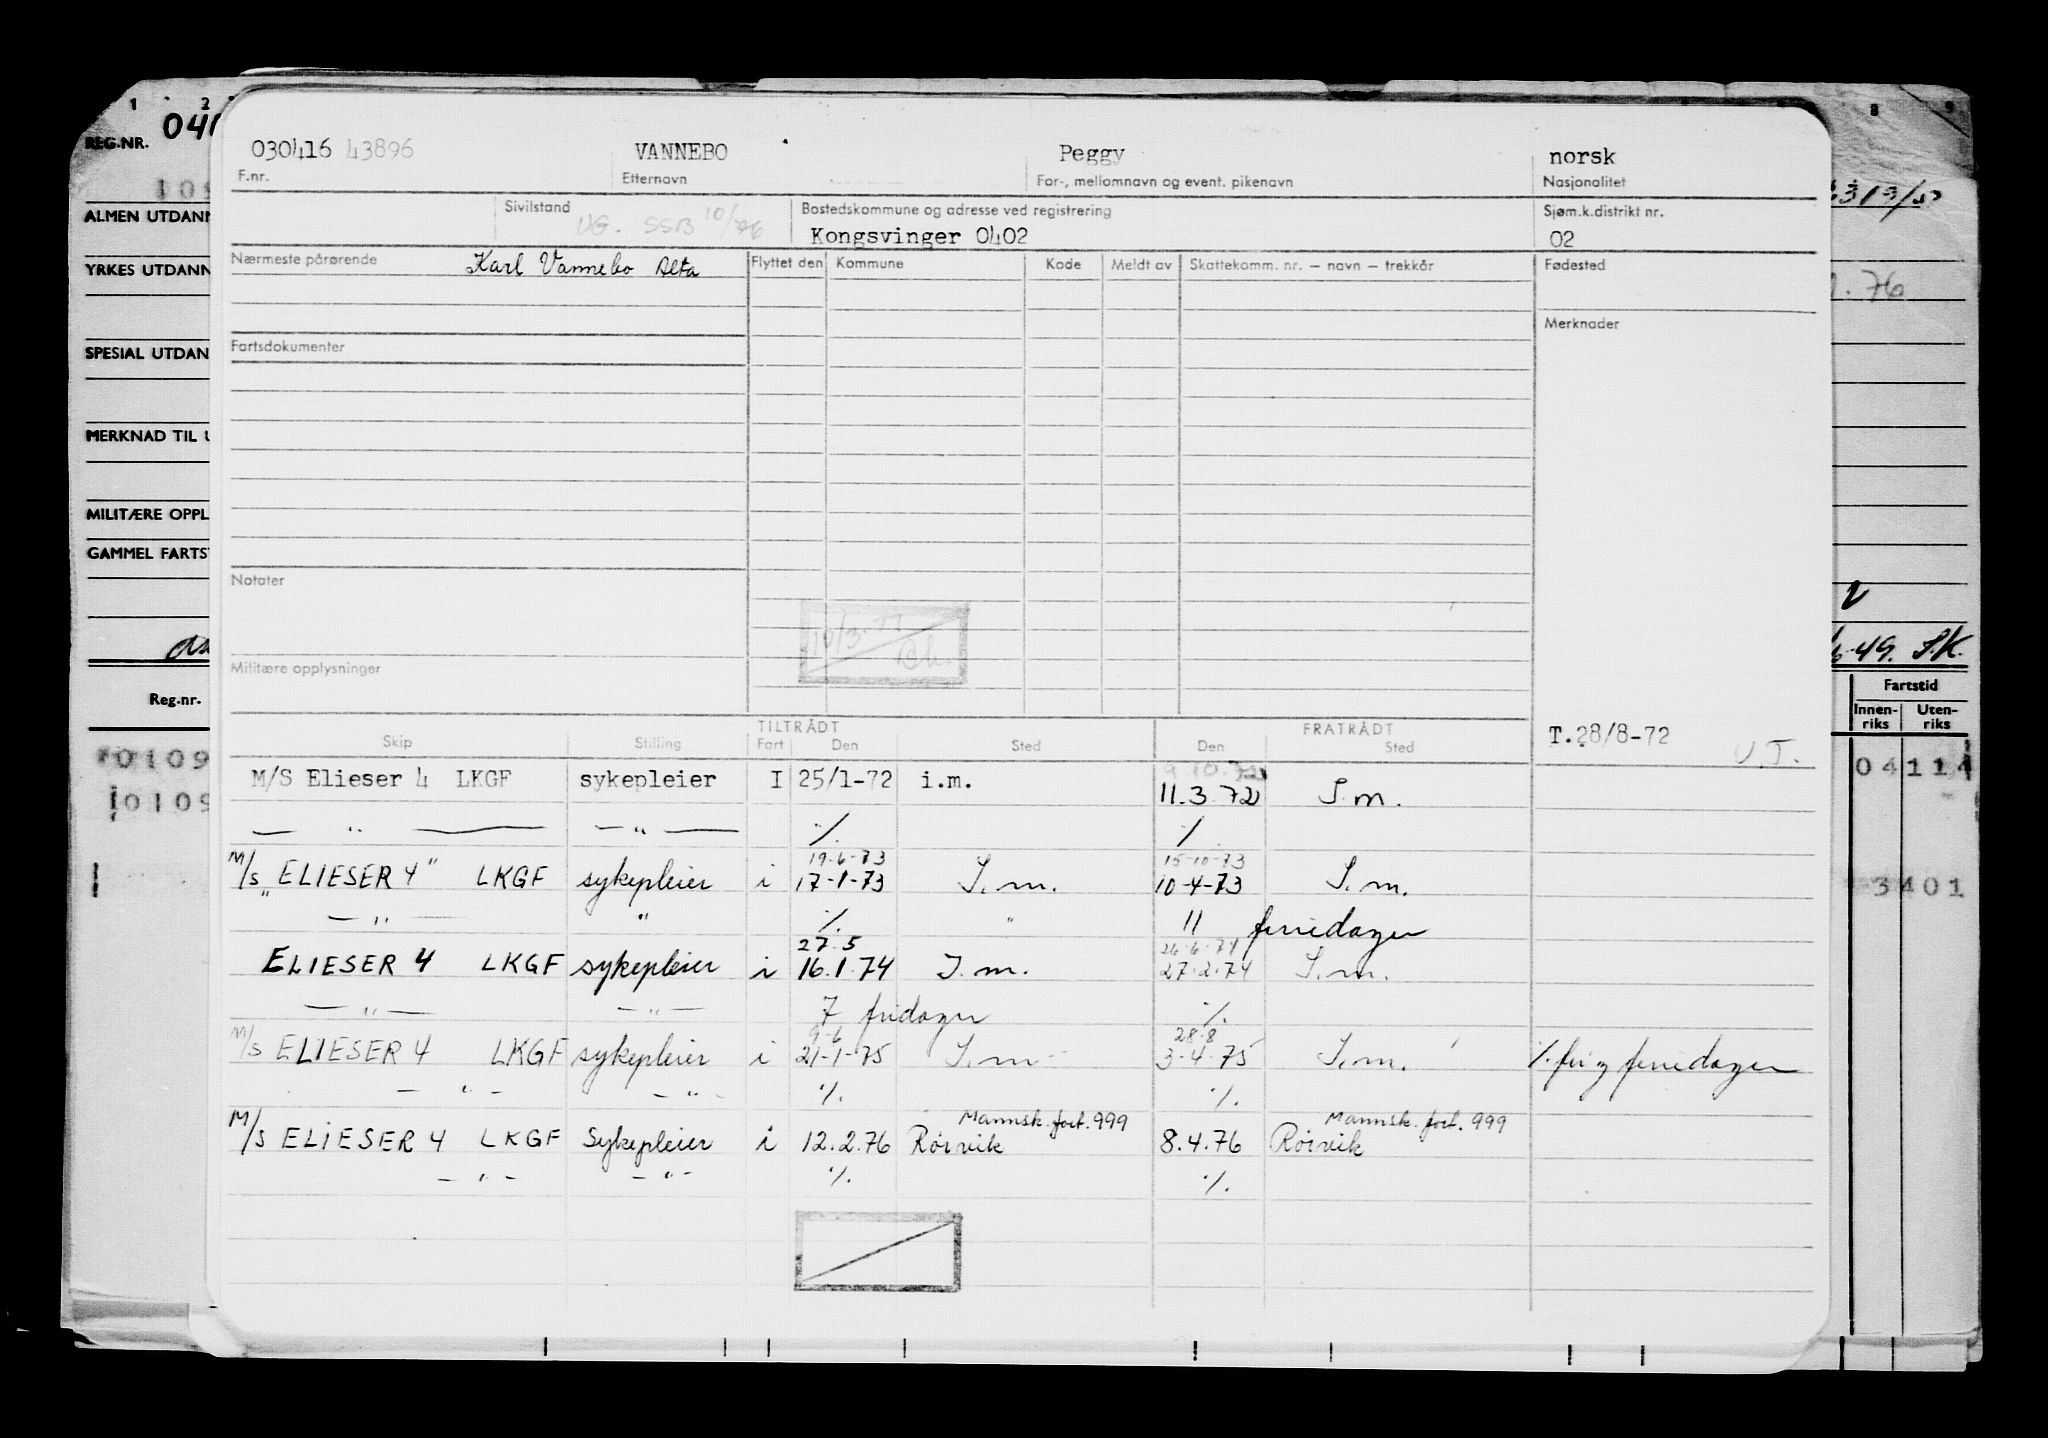 1 2 8 9
REG.NR. 040
ALMEN UTDANN
YRKES UTDANN
76
SPESIAL UTDAN
MERKNAD TIL U
MILITÆRE OPPL
GAMMEL FARTS
49. S.K.
Reg.nr.
Fartstid
Innen-riks Uten-riks
0109 04114
0109
3401
030416 43896 VANNEBO Peggy norsk
F.nr. Etternavn For-, mellomnavn og event. pikenavn Nasjonalitet
Sivilstand Bostedskommune og adresse ved registrering Sjøm.k.distrikt nr.
UG. SSB 10/76 Kongsvinger 0402 02
Nærmeste pårørende Karl Vannebo Alta Flyttet den Kommune Kode Meldt av Skattekomm. nr. — navn — trekkår Fødested
Merknader
Fartsdokumenter
Notater
10/3-77
Militære opplysninger
TILTRÅDT FRATRÅDT T.28/8-72
Skip Stilling Fart Den Sted Den Sted U.T.
9.10.72
M/S Elieser 4 LKGF sykepleier I 25/1-72 i.m. 11.3.72 I.m.
— " — — " — ⁒ ⁒
19-6-73 15-10-73
M/S "ELIESER 4" LKGF sykepleier i 17-1-73 I.m. 10-4-73 I.m.
— " — " ⁒ " 11 feriedager
27.5 26.6.74
ELIESER 4 LKGF sykepleier i 16.1.74 I.m. 27.2.74 I.m.
— " — — " — 7 fridager ⁒
9-6 28.8
M/S ELIESER 4 LKGF sykepleier i 21-1-75 I.m. 3-4-75 I.m. ⁒ fri og feriedager
— " — — " — ⁒ ⁒
Mannsk. fort. 999 Mannsk. fort. 999
M/S ELIESER 4 LKGF Sykepleier i 12.2.76 Rørvik 8.4.76 Rørvik
— " — — " — ⁒ ⁒